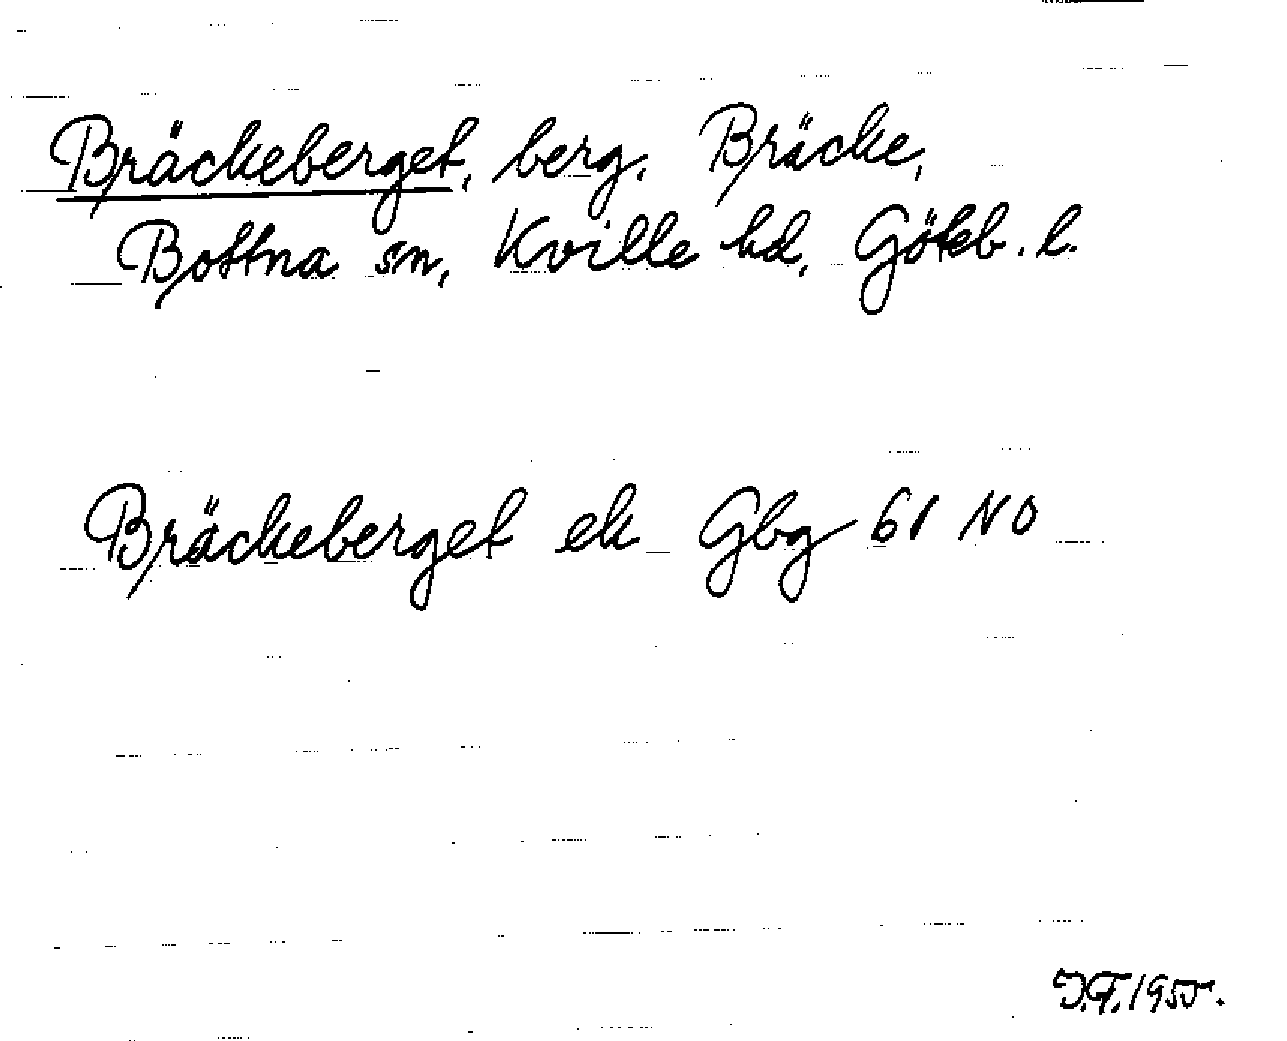 Bräckeberget, berg. Bräcke,
Bottna sn, Kville hd, Göteb. l.
Bräckeberget ek Gbg 61 NO
J.F. 1955.